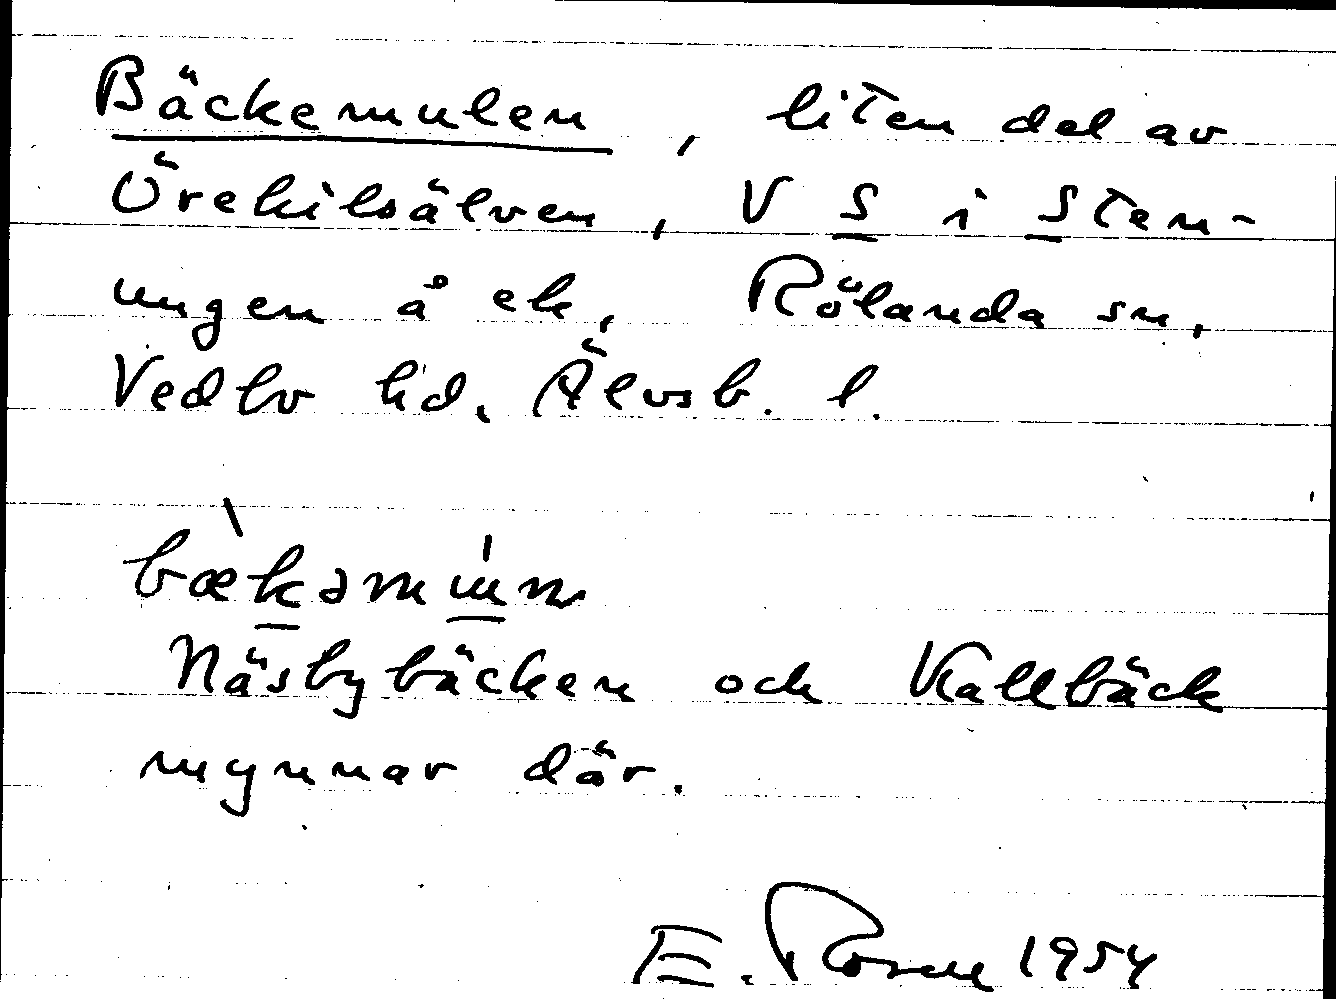 Bäckemulen, liten del av
Örekilsälven, V S i Sten-
ungen å ek, Rölanda sn,
Vedbo hd. Älvsb. l.
Näsbybäcken och Kallbäck
mynnar där.
E. Rosell 1954